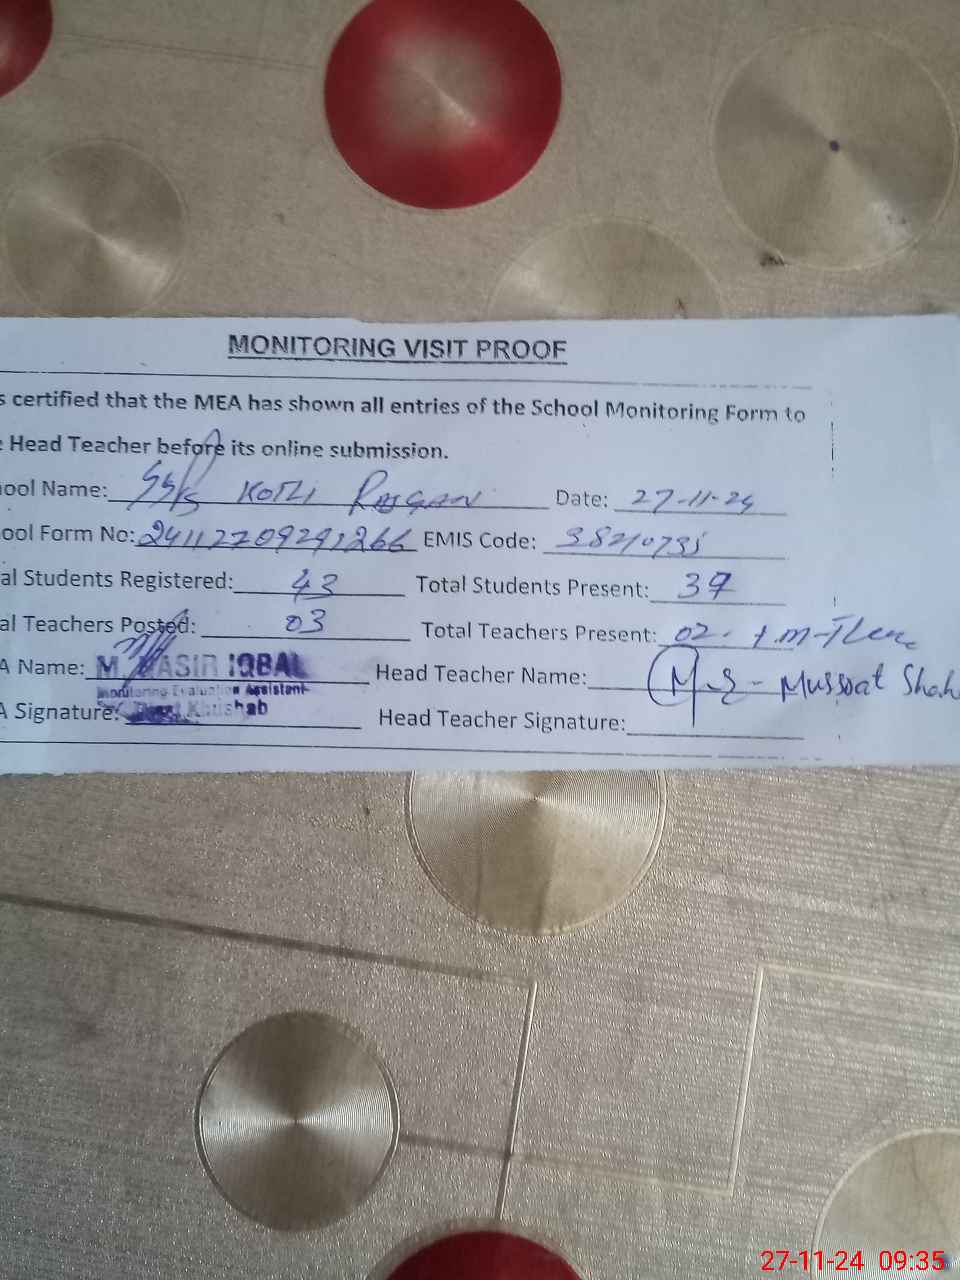 MONITORING VISIT PROOF
s certified that the MEA has shown all entries of the School Monitoring Form to
e Head Teacher before its online submission.
ool Name: KOTLI Date: 27-11-24
ool Form No: 24112709291266 EMIS Code: 38210735
al Students Registered: 43 Total Students Present: 37
al Teachers Posted: 03 Total Teachers Present: 02.
A Name: M. NASIR IQBAL Head Teacher Name: M.S- Mussrat Shah
Monitoring Evaluation Assistant
A Signature: Khushab Head Teacher Signature:
27-11-24 09:35